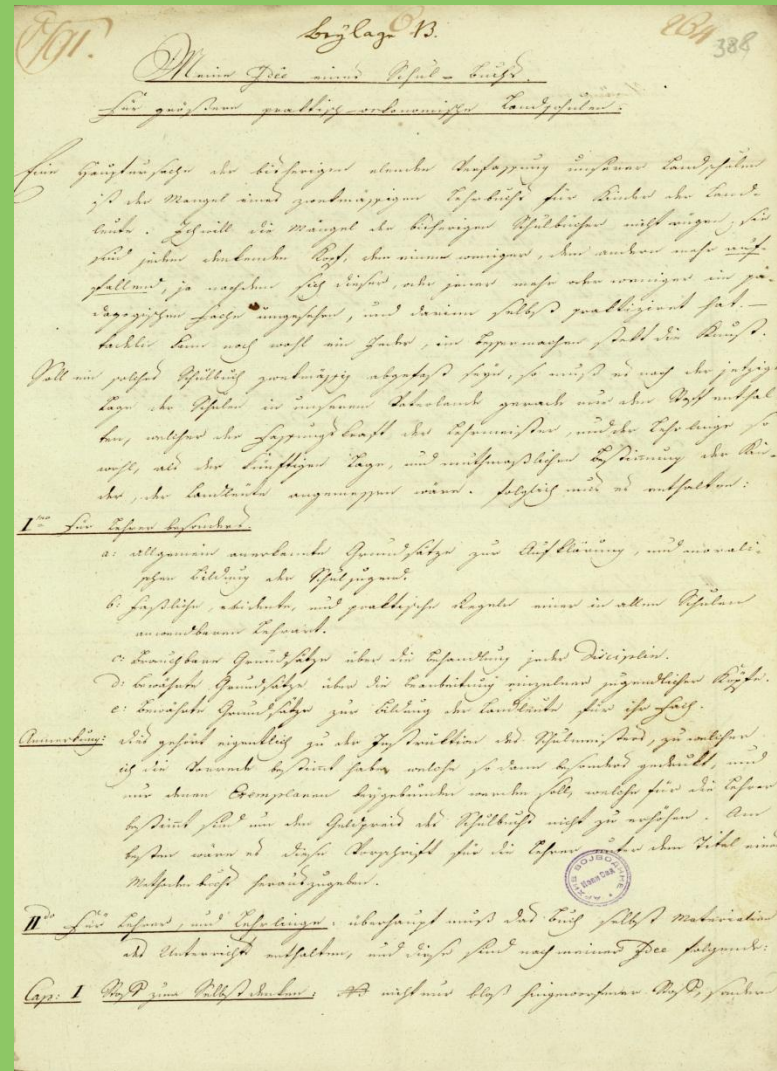 9/91.
Beylage B.
264
388
Meine Idee eines Schul-Buchs.
Für größere praktisch-oekonomische Landschulen.
Eine Hauptursache der bisherigen elenden Verfassung unserer Landschulen
ist der Mangel eines zwekmässigen Lehrbuchs für Kinder der Land-
leute. Ich will die Mängel der bisherigen Schulbücher nicht rügen; sie
sind jedem denkenden Kopf, dem einen weniger, dem andern mehr auf-
fallend, je nachdem sich dieser, oder jener mehr oder weniger im pä-
dagogischen Fache umgesehen, und darinn selbst praktizirt hat. —
tadeln kann noch wohl ein Jeder, im bessermachen stekt die Kunst.
Soll ein solches Schulbuch zwekmässig abgefaßt seyn, so muß es nach der jetzigen
Lage der Schulen in unserem Vaterlande gerade nur den Stoff enthal
ten, welcher der Fassungskraft der Lehrmeister, und der Lehrlinge so
wohl, als der künftigen Lage, und muthmaßlichen Bestimmung der Kin-
der, der Landleute angemessen wäre. folglich muß es enthalten:
I Für Lehrer besonders.
a: allgemein anerkannte Grundsätze zur Aufklärung, und morali-
schen Bildung der Schuljugend.
b: faßliche, evidente, und praktische Regeln einer in allen Schulen
anwendbaren Lehrart.
c: Brauchbare Grundsätze über die Behandlung jeder Disciplin.
d: Bewährte Grundsätze über die Bearbeitung einzelner jugendlicher Köpfe.
e: Bewährte Grundsätze zur Bildung der Landleute für ihr Fach.
Anmerkung: dies gehört eigentlich zu der Instruktion des Schulmeisters, zu welcher
ich die Vorrede bestimmt habe, welche so dann besonders gedruckt, und
nur denen Exemplaren beygebunden werden soll, welche für die Lehrer
bestimmt sind um den Geldpreis des Schulbuchs nicht zu erhöhen. Am
besten wäre es diese Vorschrift für die Lehrer unter dem Titel eines
Methodenbuchs herauszugeben.
АРХИВ ВОЈВОДИНЕ
II Für Lehrer, und Lehrlinge. überhaupt muß das Buch selbst Materialien
des Unterrichts enthalten, und diese sind nach meiner Idee folgende:
Cap: I Stoff zum Selbstdenken: nicht nur bloß hingeworfener Stoff, sondern